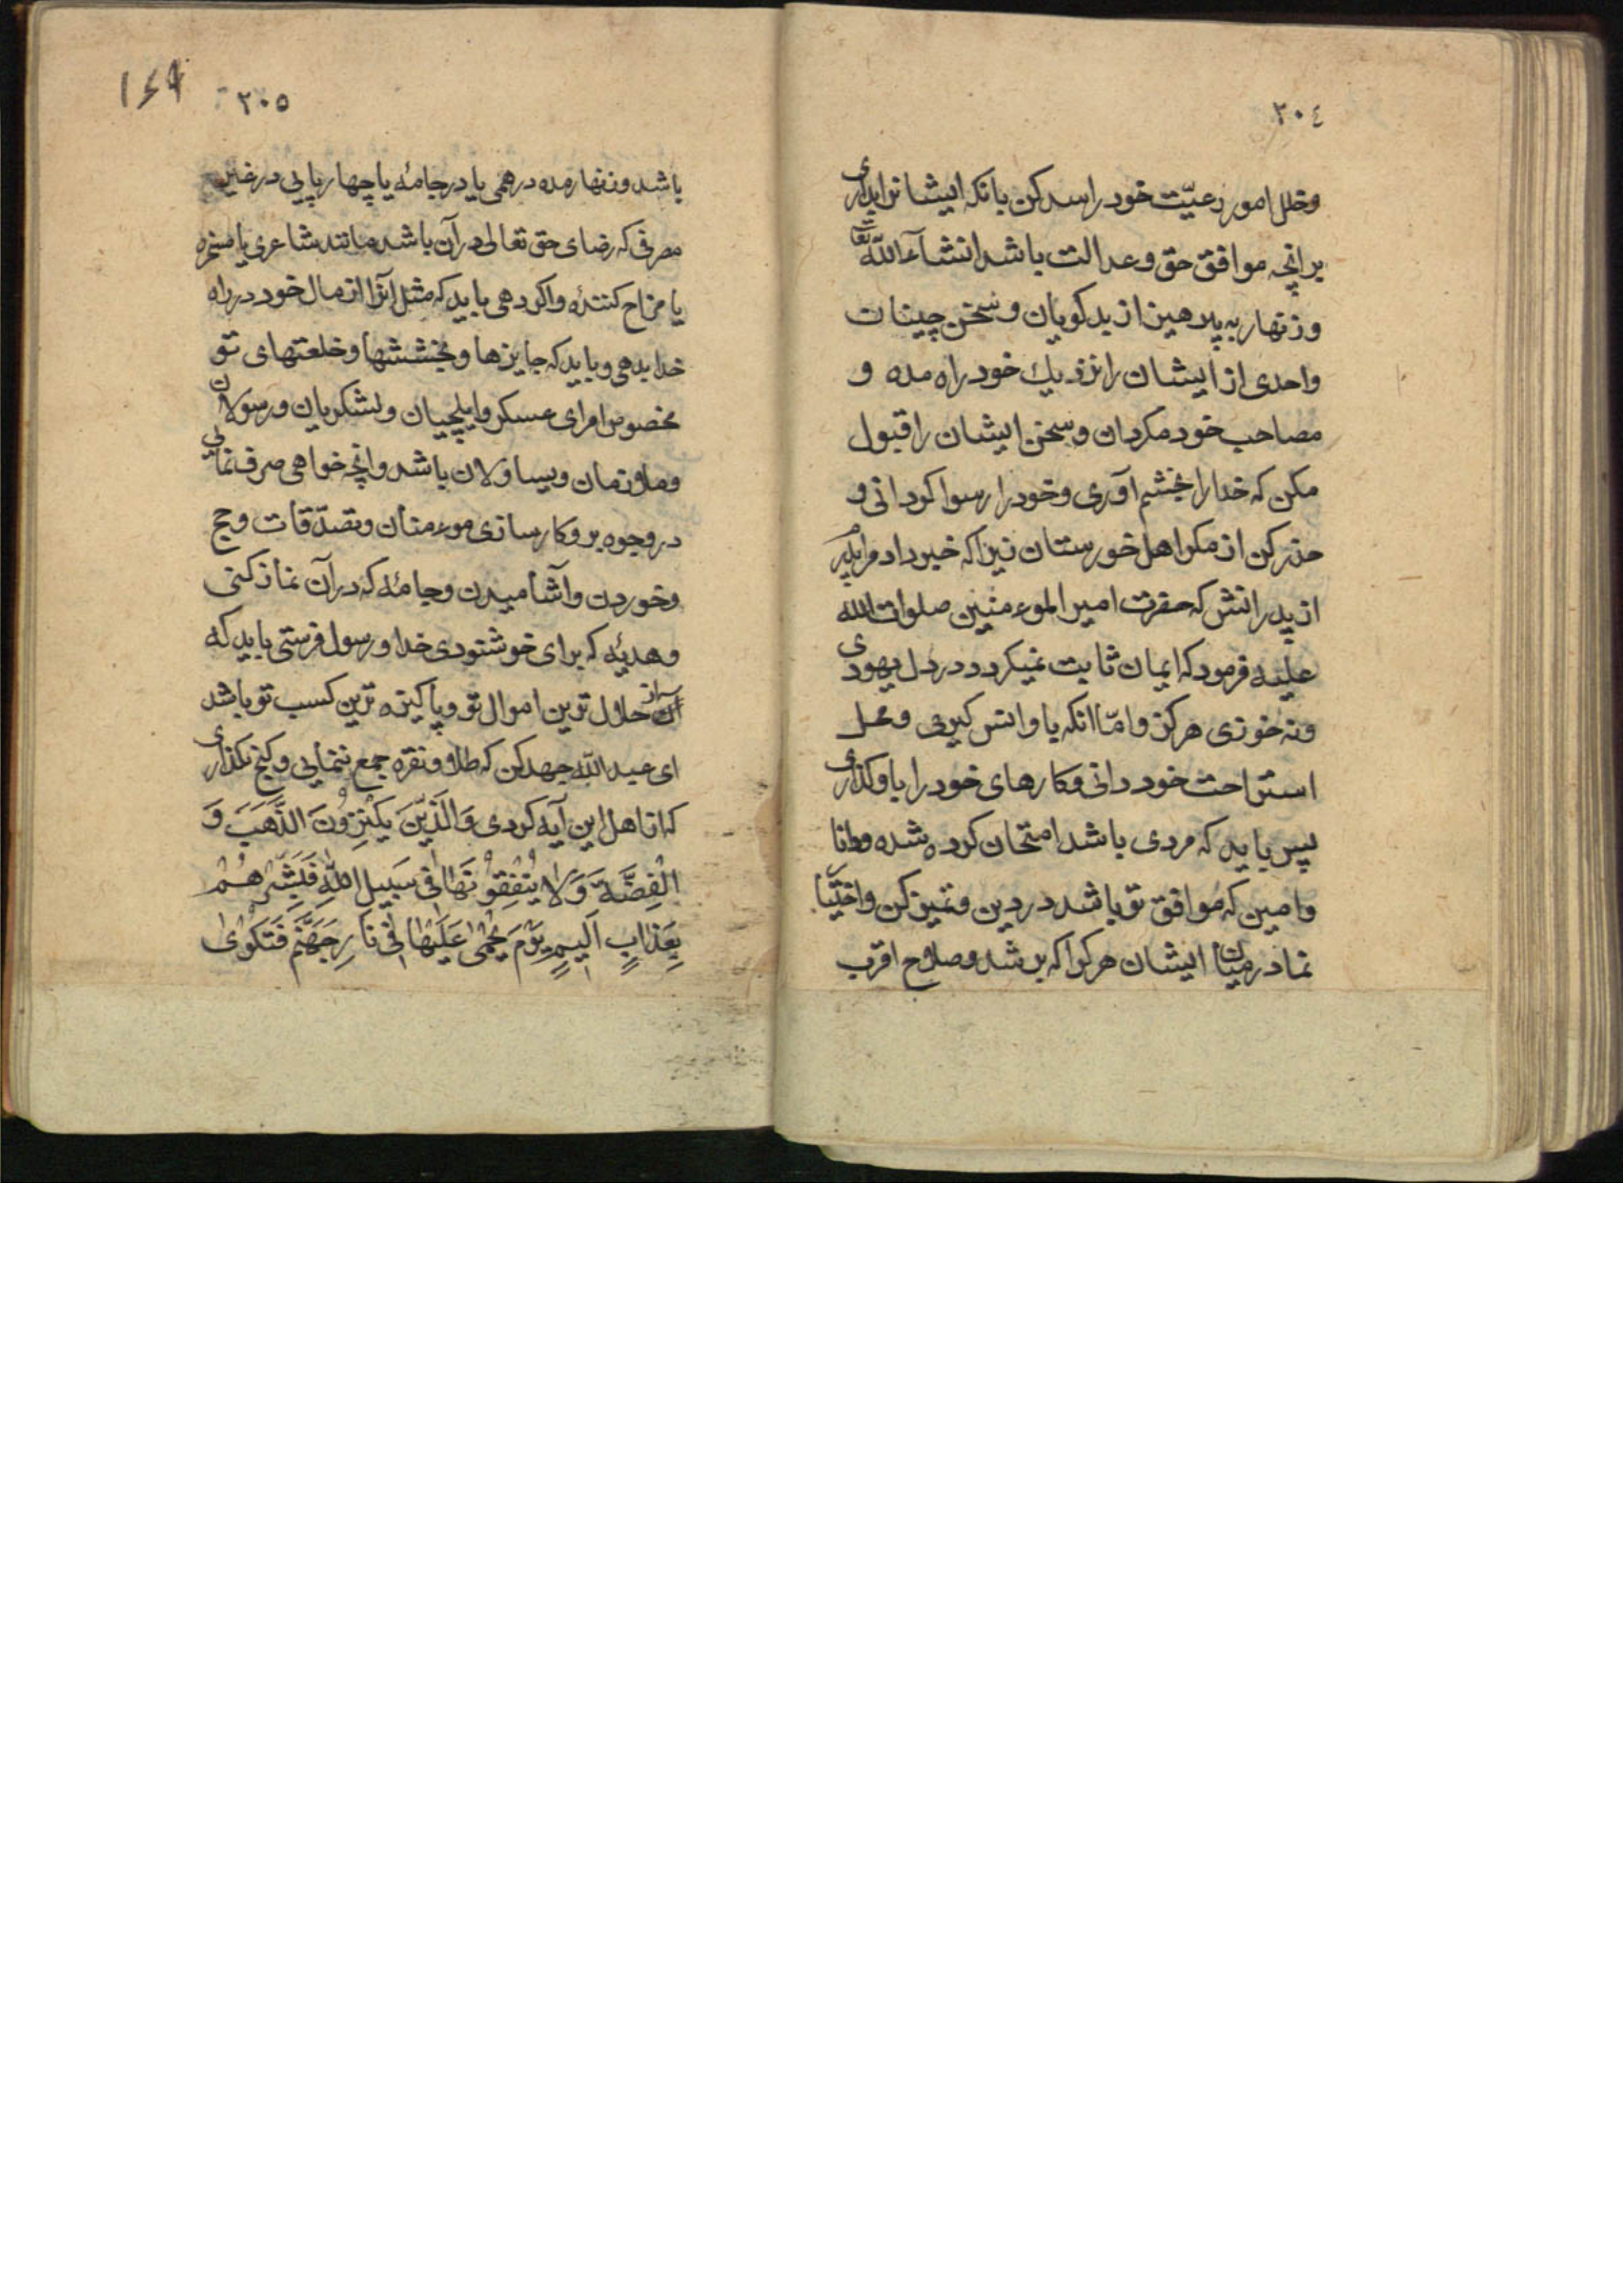 ٢٠٤
وخلل امور رعیّت خود را سد کن بانکه ایشانرا بداری
برانچه موافق حق وعدالت باشد انشآءالله تعا
وزنهار به پرهیز از بدکویان وسخن چینان
واحدی از ایشان را نزدیك خود راه مده و
مصاحب خود مکردان وسخن ایشان را قبول
مکن که خدا را بخشم آوری وخود را رسوا کردانی و
حذر کن از مکر اهل خورستان زیرا که خبر داد مرا پدرم
از پدرانش که حضرت امیر الموءمنین صلوات الله
علیه فرمود که ایمان ثابت نمیکردد در دل یهودی
ونه خوزی هرکز وامّا انکه باو انس کیری ومحل
استراحت خود دانی وکارهای خود را باو کذاری
پس باید که مردی باشد امتحان کرده شده ودانا
وامین که موافق تو باشد در دین وتمیز کن واختیا
نما در میان ایشان هرکرا که برشد وصلاح اقرب
٢٠٥
باشد وزنهار مده درهمی یا در جامهٔ یا چهارپایی در غیر
مصرفی که رضای حق تعالی در آن باشد مانند شاعری یا مسخره
یا مزاح کنندهٔ واکر دهی باید که مثل انرا از مال خود در راه
خدا بدهی وباید که جایزها وبخششها وخلعتهای تو
مخصوص امرای عسکر وایلچیان ولشکریان ورسولان
وملازمان ویساولان باشد وانچه خواهی صرف نمایی
در وجوه بر وکارسازی موءمنان وتصدّقات وحج
وخوردن وآشامیدن وجامهٔ که در آن نماز کنی
وهدیهٔ که برای خوشنودی خدا ورسول فرستی باید که
آن از حلال ترین اموال تو وپاکیزه ترین کسب تو باشد
ای عبد الله جهد کن که طلا ونقره جمع ننمایی وکنج نکذاری
که از اهل این آیه کردی وَالَّذِیْنَ یَکْنِزُوْنَ الذَّهَبَ وَ
الْفِضَّةَ وَلَا یُنْفِقُوْنَهَا فِی سَبِیلِ اللّٰهِ فَبَشِّرْهُمْ
بِعَذَابٍ اَلِیمٍ یَوْمَ یُحْمٰی عَلَیْهَا فِی نَارِ جَهَنَّمَ فَتَکْوٰی